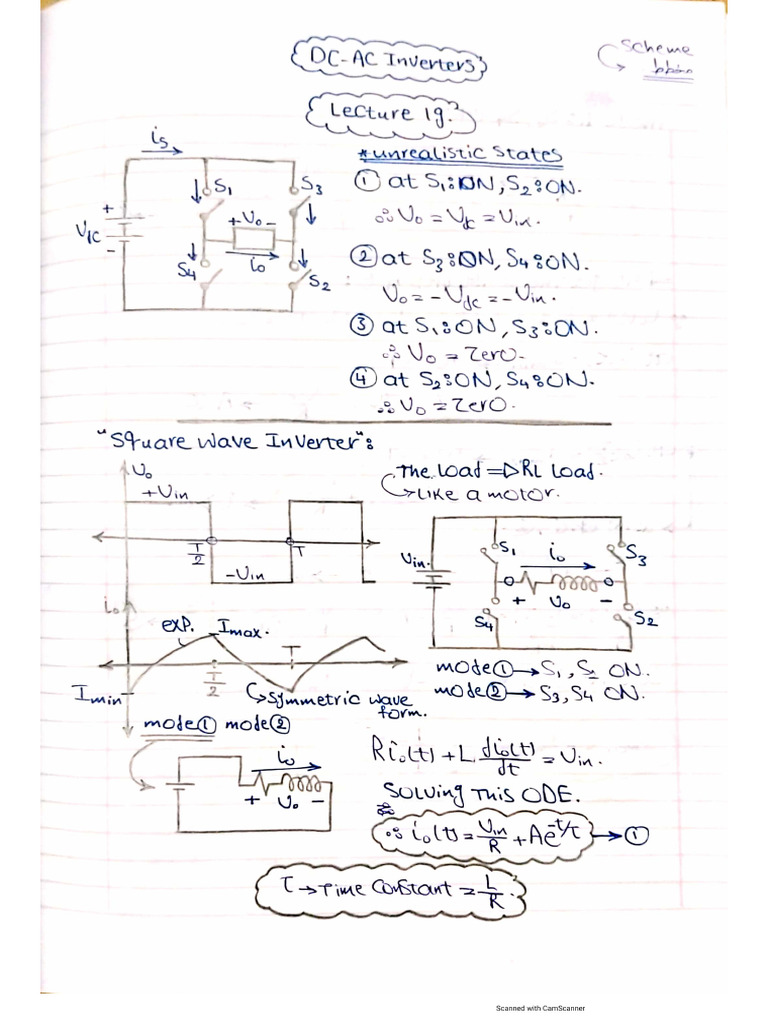 DC-AC Inverters
Scheme
Lecture 19.
*unrealistic states
① at S1:ON, S2:ON.
∴ Vo = Vdc = Vin.
② at S3:ON, S4:ON.
Vo = -Vdc = -Vin.
③ at S1:ON, S3:ON.
∴ Vo = Zero.
④ at S2:ON, S4:ON.
∴ Vo = Zero.
is
S1
S3
+
Vdc
-
+ Vo -
io
S4
S2
"Square Wave Inverter":
Vo
+Vin
T/2
T
-Vin
The Load ⇒ RL Load.
↳ Like a motor.
Vin.
S1
io
S3
+ Vo -
S4
S2
io
exp.
Imax.
T
T/2
Imin
↳ Symmetric wave
form.
mode① mode②
mode① → S1, S2 ON.
mode② → S3, S4 ON.
io
+ Vo -
Rio(t) + L dio(t)/dt = Vin.
Solving This ODE.
∴ io(t) = Vin/R + Ae^-t/τ → ①
τ → Time Constant = L/R.
Scanned with CamScanner